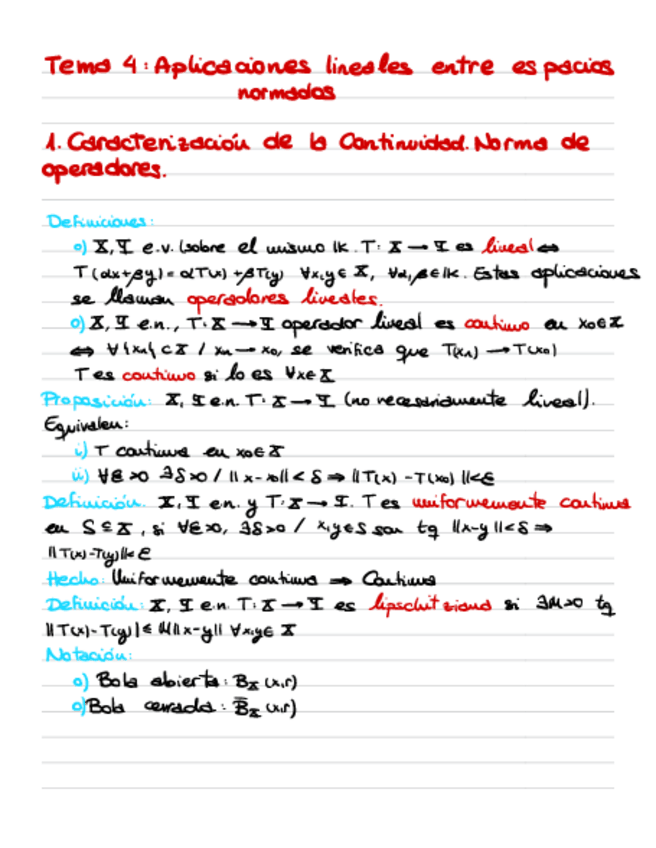 Tema 4: Aplicaciones lineales entre espacios
normados
1. Caracterización de la Continuidad. Norma de
operadores.
Definiciones:
o) X, Y e.v. (sobre el mismo IK. T: X → Y es lineal ⇔
T(αx+βy) = αT(x) + βT(y) ∀x,y ∈ X, ∀α,β ∈ IK. Estas aplicaciones
se llaman operadores lineales.
o) X, Y e.n., T: X → Y operador lineal es continuo en x₀ ∈ X
⇔ ∀{xₙ} ⊂ X / xₙ → x₀, se verifica que T(xₙ) → T(x₀)
T es continuo si lo es ∀x ∈ X
Proposición: X, Y e.n. T: X → Y (no necesariamente lineal).
Equivalen:
i) T continua en x₀ ∈ X
ii) ∀ε > 0 ∃δ > 0 / ||x - x₀|| < δ ⇒ ||T(x) - T(x₀)|| < ε
Definición. X, Y e.n. y T: X → Y. T es uniformemente continua
en S ⊆ X, si ∀ε > 0, ∃δ > 0 / x,y ∈ S son tq ||x-y|| < δ ⇒
||T(x)-T(y)|| < ε
Hecho: Uniformemente continua ⇒ Continua
Definición: X, Y e.n. T: X → Y es lipschitziana si ∃M > 0 tq
||T(x)-T(y)|| ≤ M||x-y|| ∀x,y ∈ X
Notación:
o) Bola abierta: B_X (x,r)
o) Bola cerrada: B̅_X (x,r)